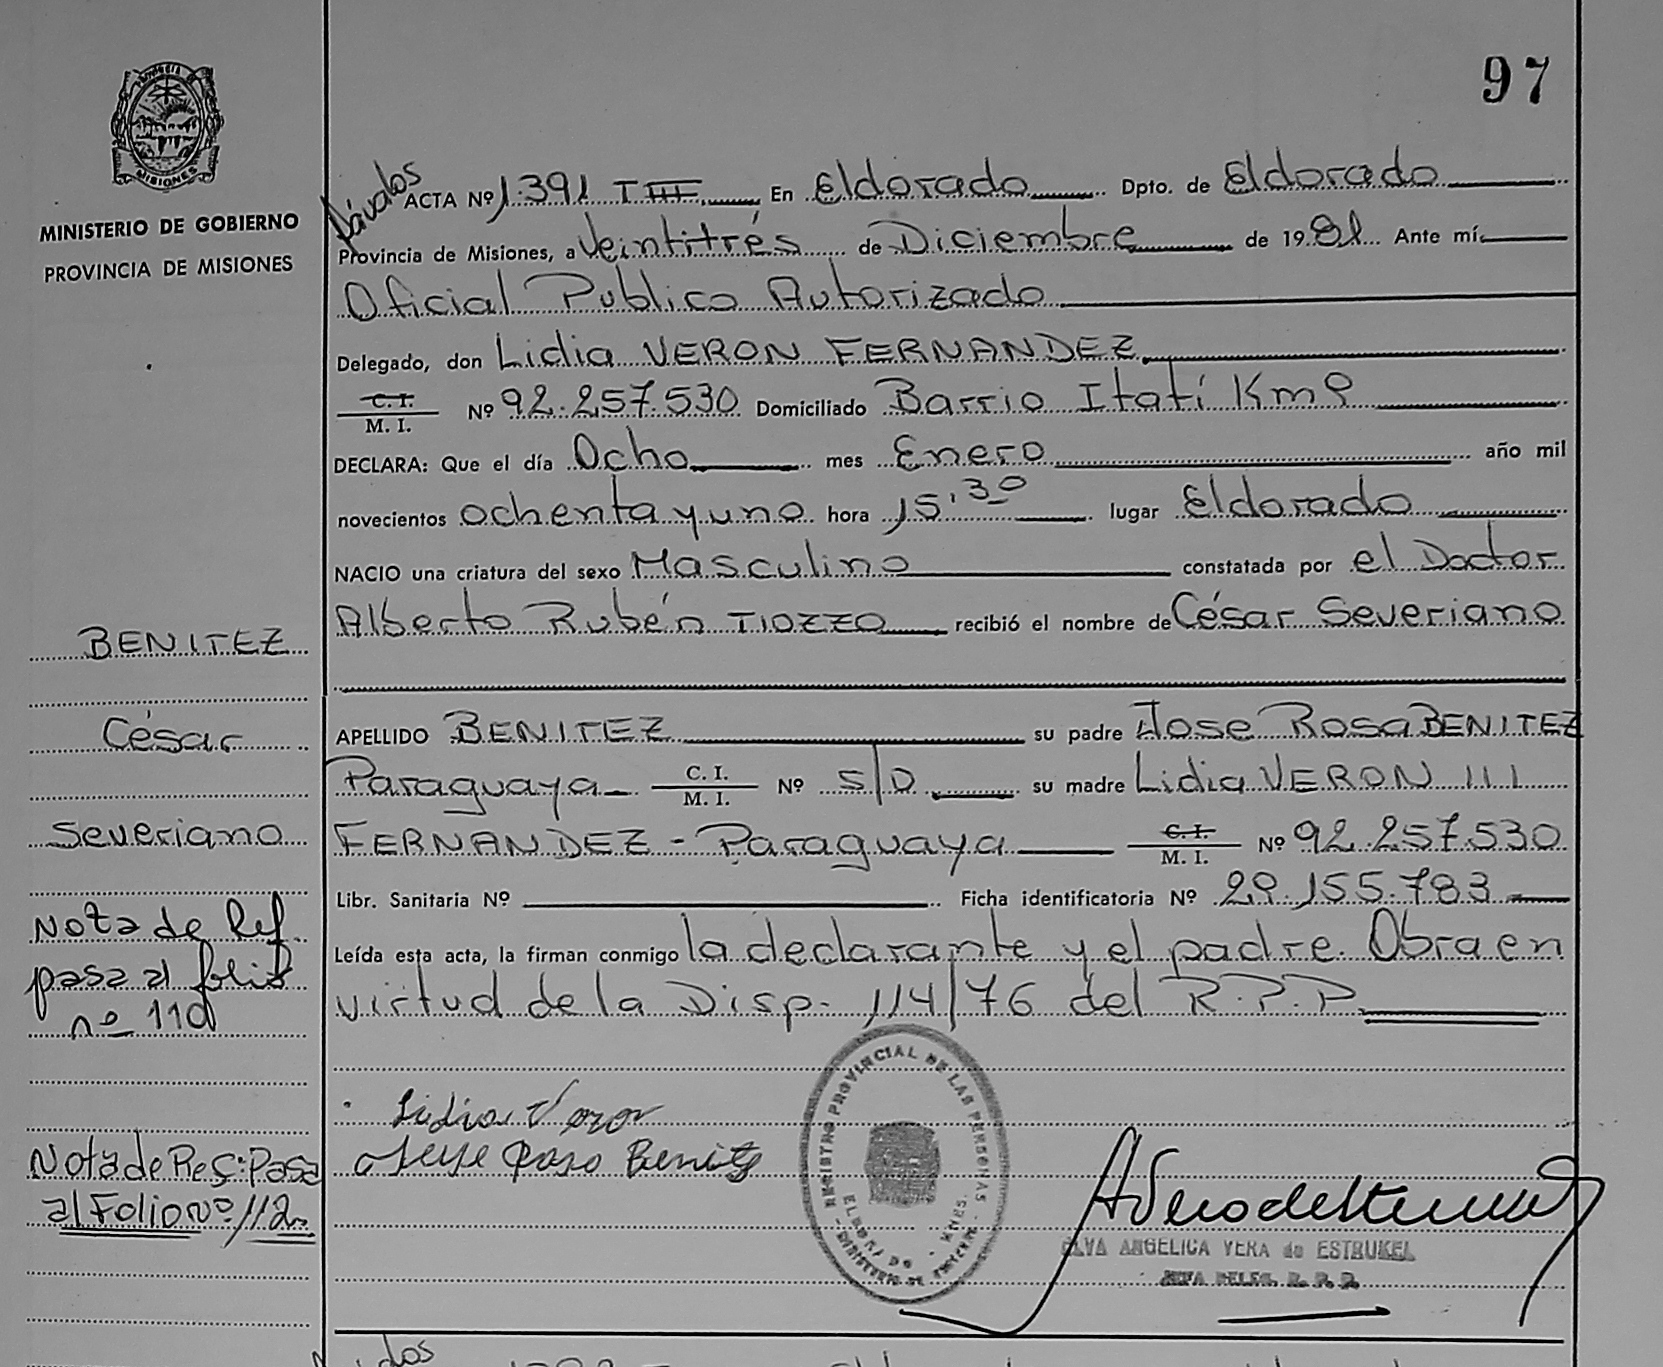 97
MISIONES
MINISTERIO DE GOBIERNO
PROVINCIA DE MISIONES
ACTA Nº 1.391 T III En Eldorado Dpto. de Eldorado
Provincia de Misiones, a Veintitrés de Diciembre de 1981 Ante mí
Oficial Publico Autorizado
Delegado, don Lidia VERON FERNANDEZ
C. I. / M. I. Nº 92.257.530 Domiciliado Barrio Itatí Km 9
DECLARA: Que el día Ocho mes Enero año mil
novecientos ochenta y uno hora 15,30 lugar Eldorado
NACIO una criatura del sexo Masculino constatada por el Doctor
Alberto Rubén TIOZZO recibió el nombre de César Severiano
APELLIDO BENITEZ su padre Jose Rosa BENITEZ
Paraguaya C. I. / M. I. Nº S/D su madre Lidia VERON
FERNANDEZ - Paraguaya C. I. / M. I. Nº 92.257.530
Libr. Sanitaria Nº Ficha identificatoria Nº 29.155.783
Leída esta acta, la firman conmigo la declarante y el padre. Obra en
virtud de la Disp. 114/76 del R.P.P.
BENITEZ
César
Severiano
Nota de Ref.
pasa al folio
nº 110
Nota de Res: Pasa
al Folio Nº 112
Lidia Veron
Jose Rosa Benitez
REGISTRO PROVINCIAL DE LAS PERSONAS
ELDORADO - MNES.
ELVA ANGELICA VERA de ESTRUKEL
JEFA DELEG. R. P. P.